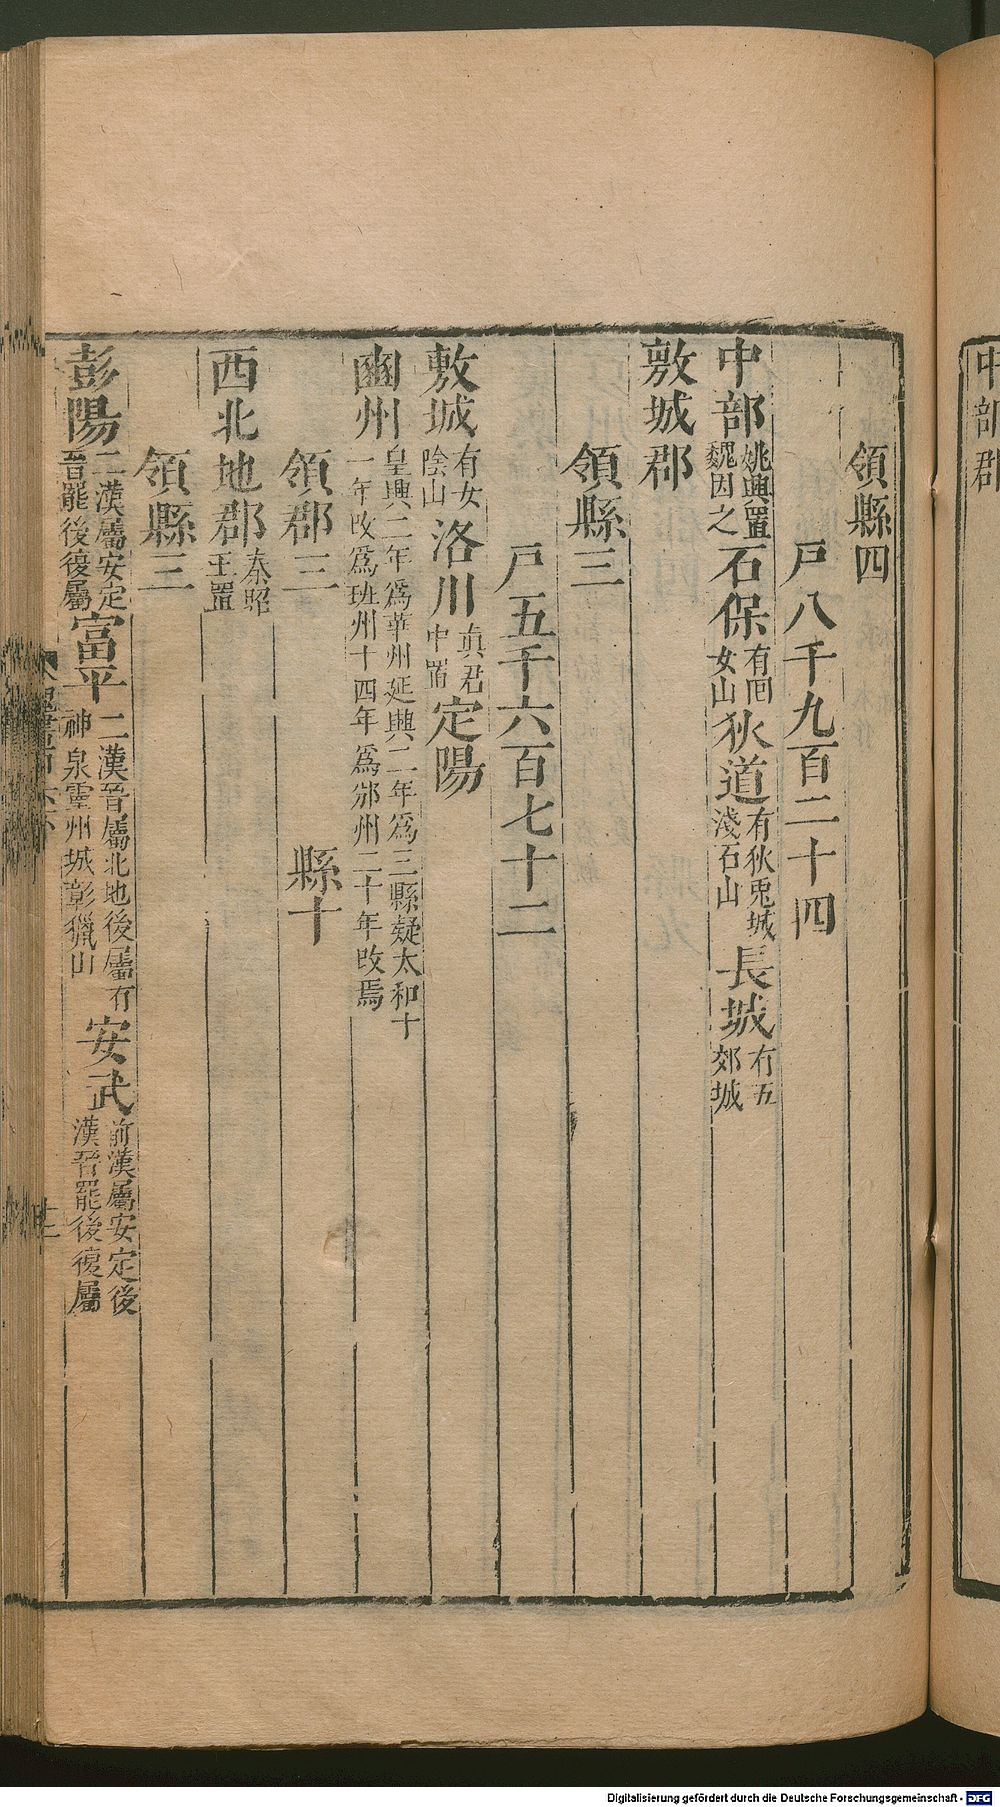 中部郡
領縣四
戸八千九百二十四
中部姚興置魏因之石保有罔女山狄道有狄兎城淺石山長城有五郊城
敷城郡
領縣三
戸五千六百七十二
敷城有女陰山洛川真君中置定陽
豳州皇興二年爲華州延興二年爲三縣疑太和十一年改爲班州十四年爲邠州二十年改焉
領郡三 縣十
西北地郡秦昭王置
領縣三
彭陽二漢屬安定晉罷後復屬富平二漢晉屬北地後屬有神泉靈州城彰獵山安武前漢屬安定後漢晉罷後復屬
Digitalisierung gefördert durch die Deutsche Forschungsgemeinschaft - DFG